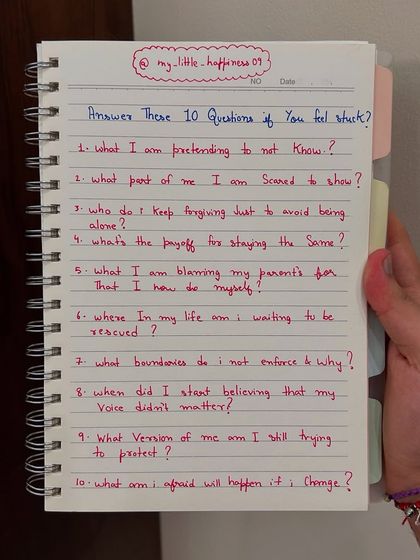 @ my_little_happiness 09
NO Date
Answer These 10 Questions if You feel stuck?
1. what I am pretending to not Know.?
2. what part of me I am Scared to show?
3. who do i keep forgiving Just to avoid being
alone?
4. what's the payoff for staying the Same?
5. what I am blaming my parent's for
That I now do myself?
6. where In my life am i waiting to be
rescued ?
7. what boundaries do i not enforce & Why?
8. when did I start believing that my
Voice didn't matter?
9. What Version of me am I still trying
to protect?
10. what am i afraid will happen if i Change?